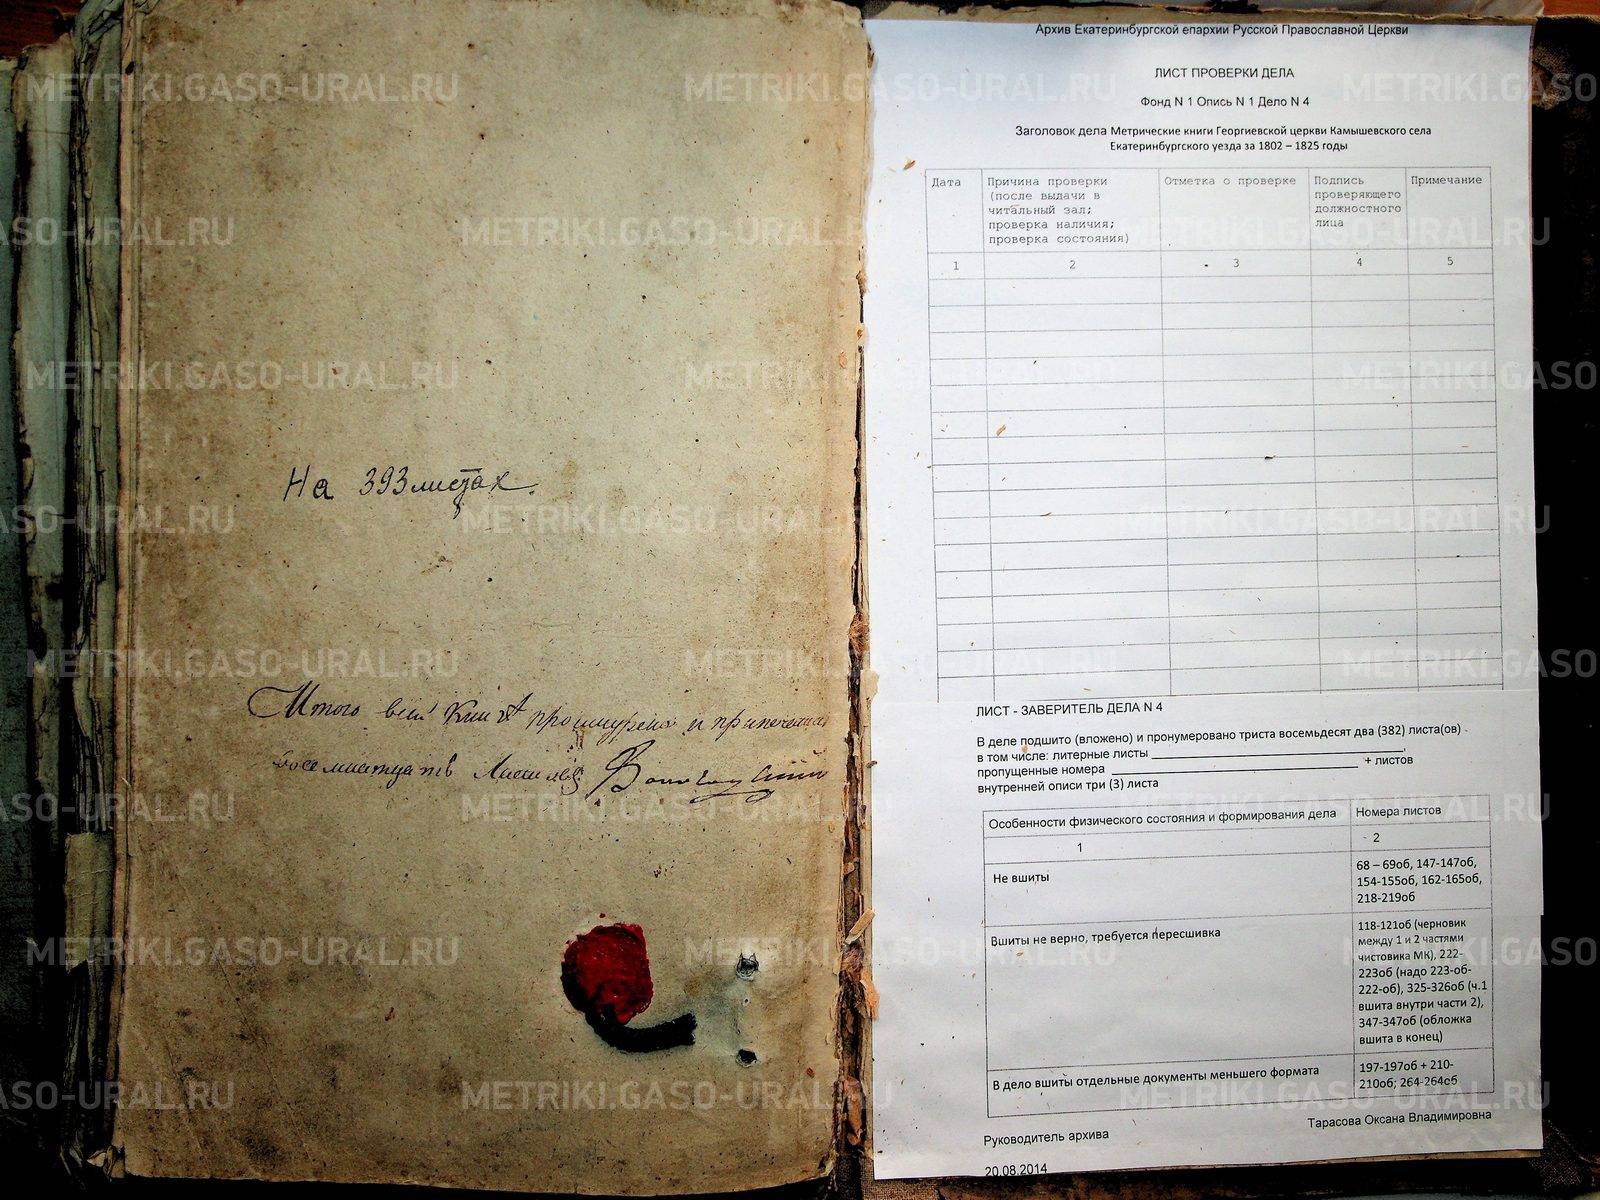 На 393 листах.
Итого всей Книгѣ прошнурено и припечатано
восемнатцать Листовъ
Архив Екатеринбургской епархии Русской Православной Церкви
ЛИСТ ПРОВЕРКИ ДЕЛА
Фонд N 1 Опись N 1 Дело N 4
Заголовок дела Метрические книги Георгиевской церкви Камышевского села
Екатеринбургского уезда за 1802 – 1825 годы
Дата
Причина проверки
(после выдачи в
читальный зал;
проверка наличия;
проверка состояния)
Отметка о проверке
Подпись
проверяющего
должностного
лица
Примечание
1
2
3
4
5
ЛИСТ - ЗАВЕРИТЕЛЬ ДЕЛА N 4
В деле подшито (вложено) и пронумеровано триста восемьдесят два (382) листа(ов)
в том числе: литерные листы ,
пропущенные номера + листов
внутренней описи три (3) листа
Особенности физического состояния и формирования дела
Номера листов
1
2
Не вшиты
68 – 69об, 147-147об,
154-155об, 162-165об,
218-219об
Вшиты не верно, требуется пересшивка
118-121об (черновик
между 1 и 2 частями
чистовика МК), 222-
223об (надо 223-об-
222-об), 325-326об (ч.1
вшита внутри части 2),
347-347об (обложка
вшита в конец)
В дело вшиты отдельные документы меньшего формата
197-197об + 210-
210об; 264-264об
Руководитель архива
Тарасова Оксана Владимировна
20.08.2014
METRIKI.GASO-URAL.RU